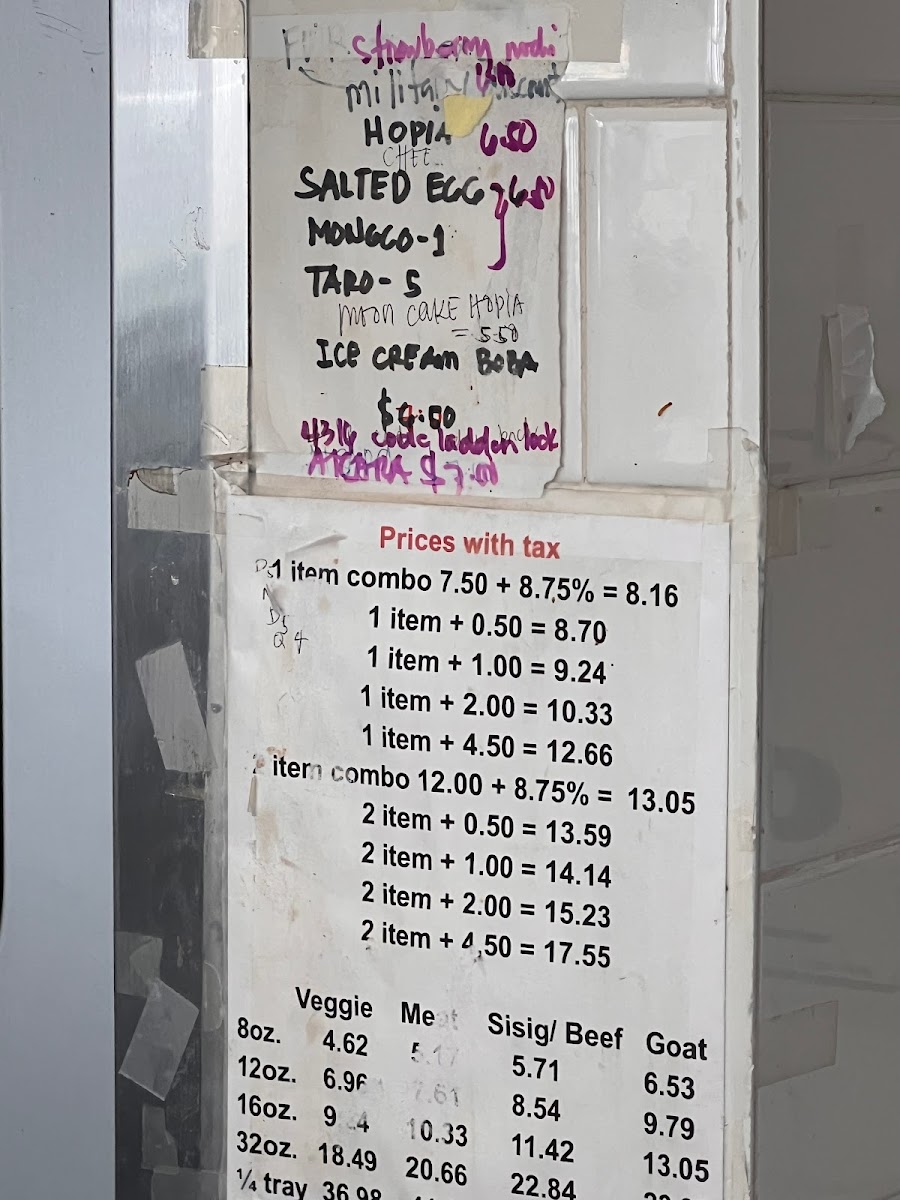 strawberry mochi
military discount
HOPIA 6.50
CHEE..
SALTED EGG 6.50
MONGGO-1
TARO- 5
MOON CAKE HOPIA
= 5.50
ICE CREAM BOBA
$6.50
4316 code ladder lock
$7.00
Prices with tax
1 item combo 7.50 + 8.75% = 8.16
1 item + 0.50 = 8.70
D5
Q 4
1 item + 1.00 = 9.24
1 item + 2.00 = 10.33
1 item + 4.50 = 12.66
2 item combo 12.00 + 8.75% = 13.05
2 item + 0.50 = 13.59
2 item + 1.00 = 14.14
2 item + 2.00 = 15.23
2 item + 4.50 = 17.55
Veggie Meat Sisig/ Beef Goat
8oz. 4.62 5.17 5.71 6.53
12oz. 6.96 7.61 8.54 9.79
16oz. 10.33 11.42 13.05
32oz. 18.49 20.66 22.84
¼ tray 36.98